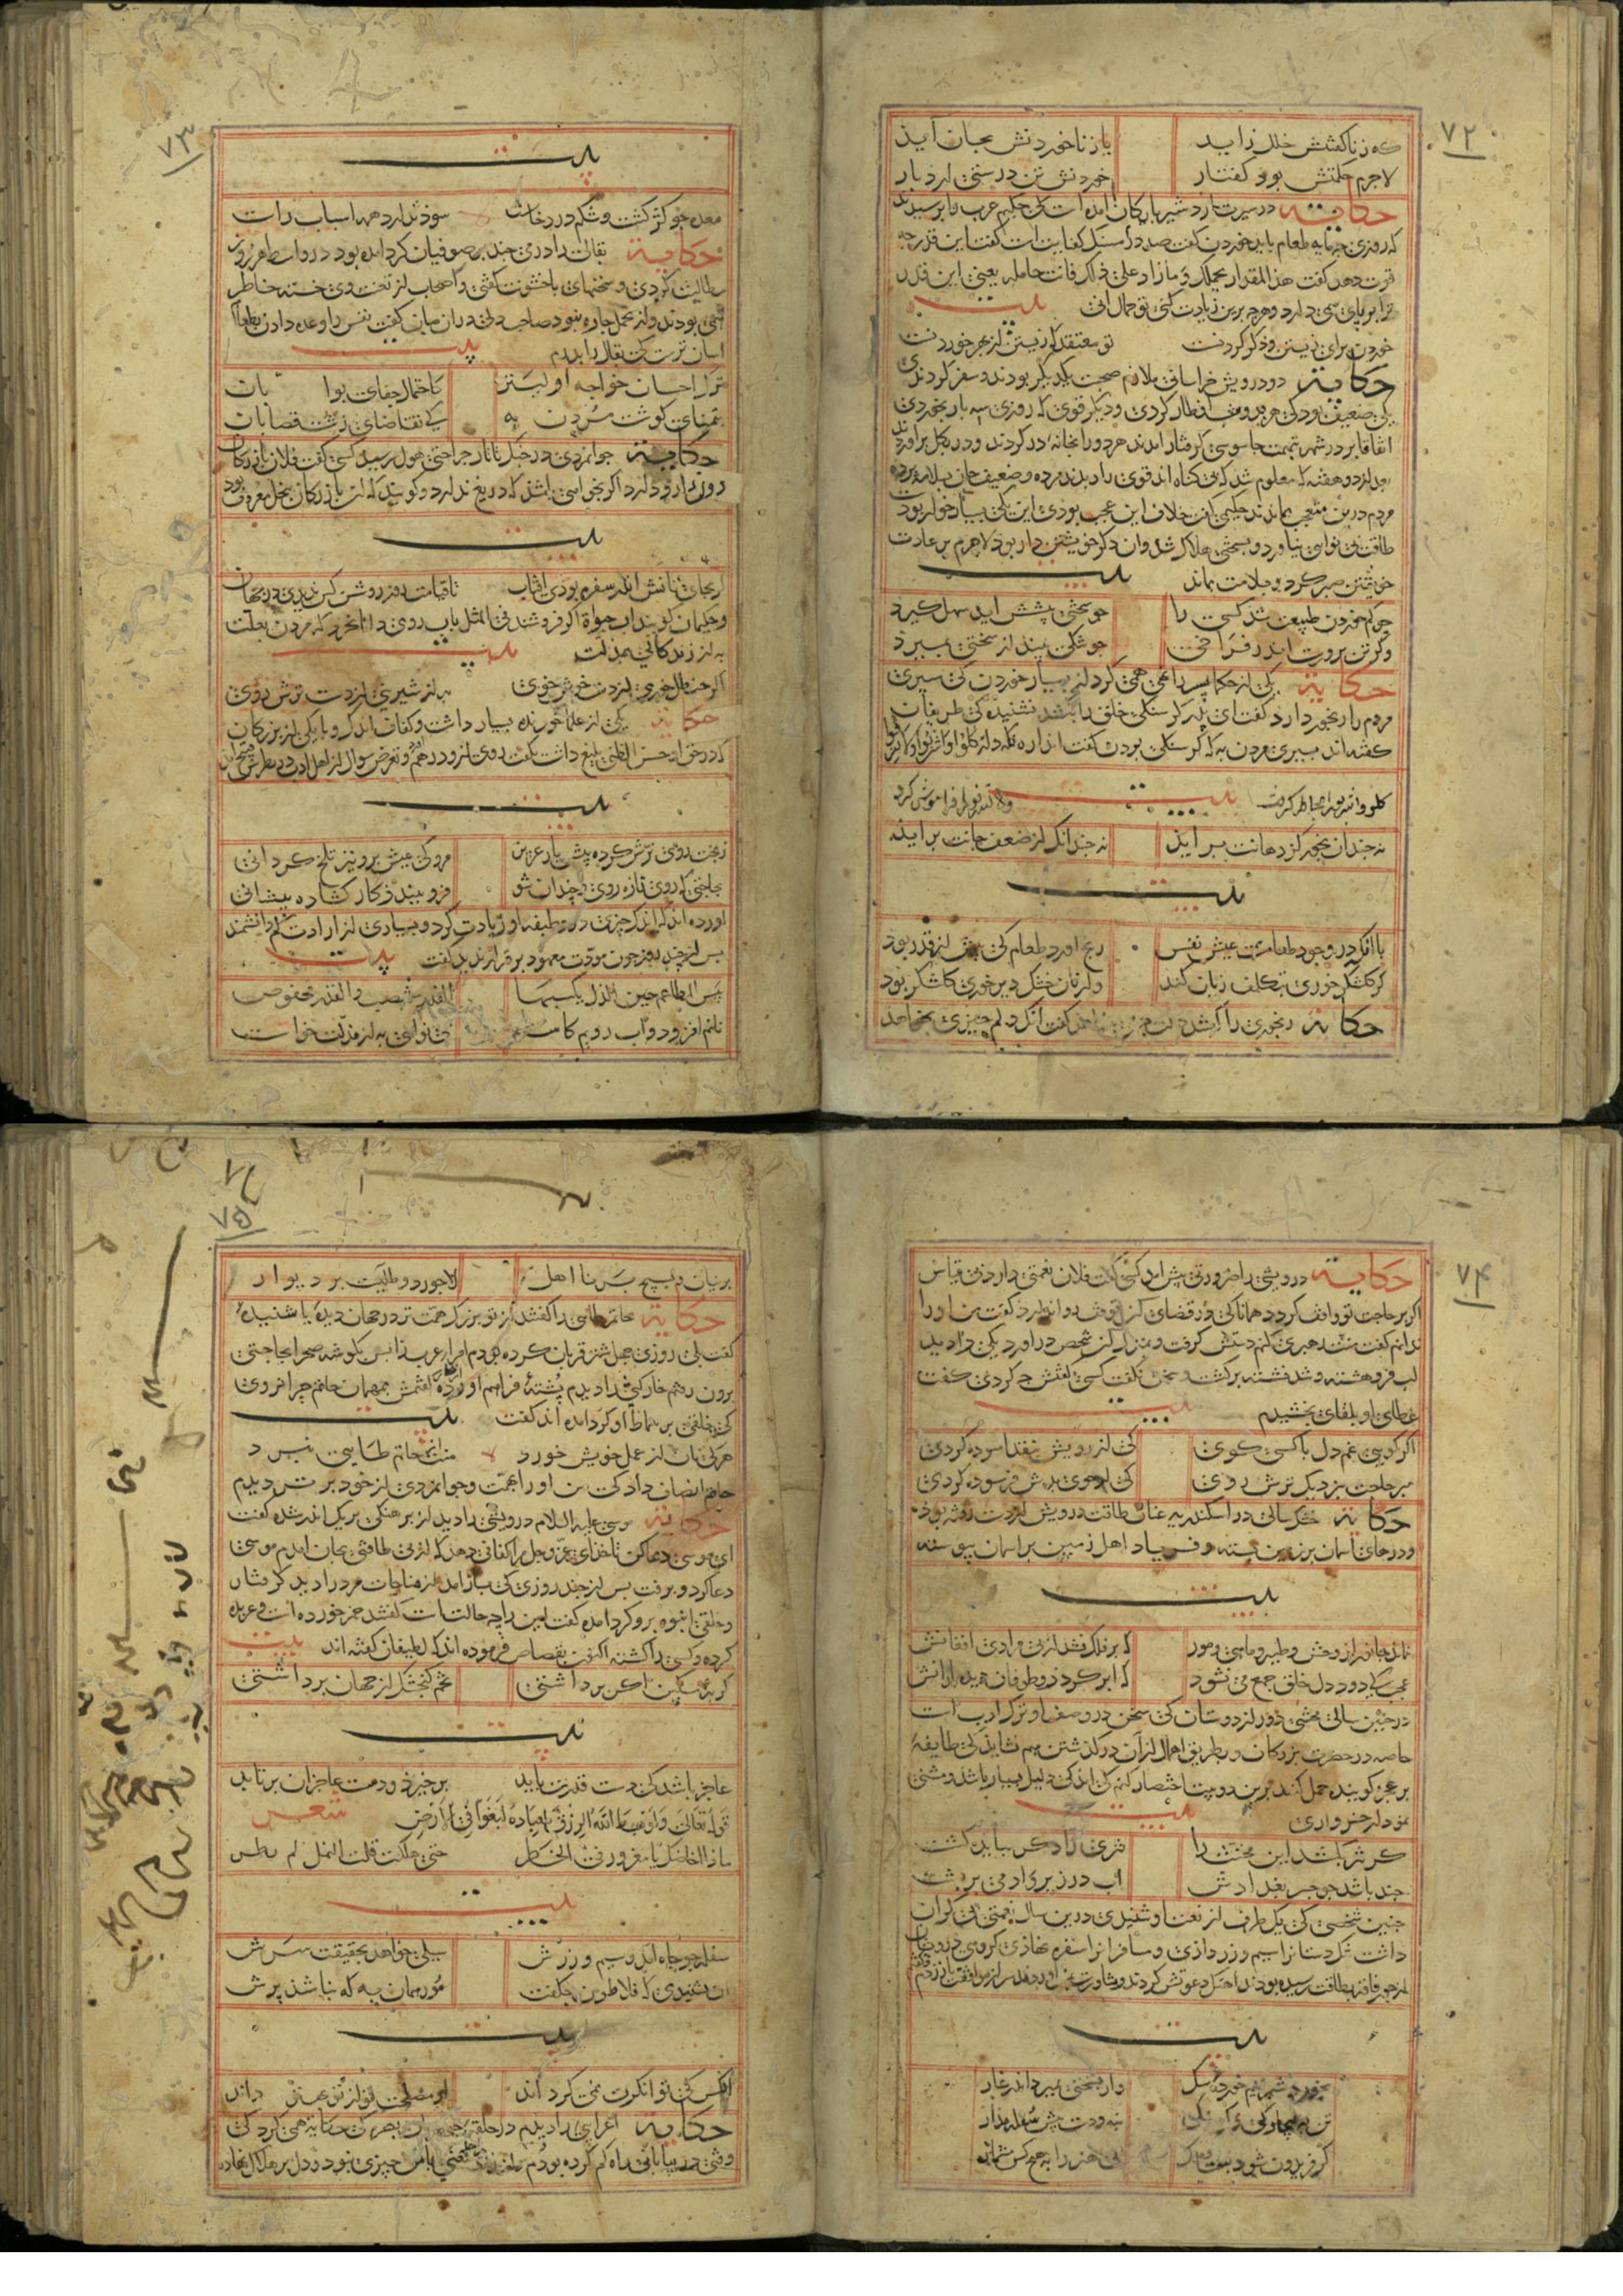 ۷۲
که زناکفتش خلل زاید یا زناخوردنش بجان آید
لاجرم حکمتش بود کفتار خوردنش تن درستی ارد بار
حکایة در سیرت اردشیر بابکان امده است که حکیم عرب را برسیدند
که روزی جه مایه طعام باید خوردن کفت صد درم سنک کفایت است کفت این قدر جه
قوت دهد کفت هذا المقدار یحملک و ما زاد علی ذلک فانت حامله یعنی این قدر
ترا بر پای می دارد و هرچه برین زیادت کنی تو حمال انی بیت
خوردن برای زیستن و ذکر کردنت تو معتقد که زیستن از بهر خوردنت
حکایة دو درویش خراسانی ملازم صحبت یکدیکر بودند و سفر کردندی
یکی ضعیف بود که هر بدو شب افطار کردی و دیکر قوی که روزی سه بار بخوردی
اتفاقا بر در شهر بتهمت جاسوسی کرفتار امدند هر دو را بخانه در کردند و در بکل براوردند
بعد از دو هفته که معلوم شد که بی کناه اند قوی را دیدند مرده و ضعیف جان بسلامت برده
مردم درین متعجب بماندند حکیمی کفت خلاف این عجب بودی این یکی بسیار خوار بود
طاقت بی نوایی نیاورد و بسختی هلاک شد وان دکر خویشتن دار بود لاجرم بر عادت
خویشتن صبر کرد و بسلامت بماند بیت
جو کم خوردن طبیعت شد کسی را جو سختی پیشش اید سهل کیرد
وکر تن پرورست اندر فراخی جو تنکی بیند از سختی بمیرد
حکایة یکی از حکما پسر را نهی همی کرد از بسیار خوردن که سیری
مردم را رنجور دارد کفت ای پدر کرسنکی خلق را بکشد نشنیده که ظریفان
کفته اند بسیری مردن به که کرسنکی بردن کفت اندازه نکه دار کلوا واشربوا ولا تسرفوا
کلوا واشربوا بیت ولا تسرفوا را فراموش کرد
نه جندان بخور کز دهانت براید نه جندانک از ضعف جانت براید
بیت
با انکه در وجود طعامست عیش نفس رنج اورد طعام که بیش از قدر بود
کر کلشکر خوری بتکلف زیان کند ور نان خشک دیر خوری کلشکر بود
حکایة رنجوری را کفتند دلت جه می خواهد کفت انک دلم جیزی نخواهد
۷۳
بیت
معده جو کژ کشت و شکم درد خاست سود ندارد همه اسباب راست
حکایة بقالی را درمی جند بر صوفیان کرد امده بود در واسط هر روز
مطالبت کردی و سخنهای با خشونت کفتی و اصحاب از تعنت وی خسته خاطر
همی بودند و از تحمل جاره نبود صاحب دلی در ان میان کفت نفس را وعده دادن بطعام
اسان ترست که بقال را بدرم بیت
ترک احسان خواجه اولیتر کاحتمال جفای بوابان
بتمنای کوشت مردن به که تقاضای زشت قصابان
حکایة جوانمردی در جنک تاتار جراحتی هول رسید کسی کفت فلان بازرکان
نوش دارو دارد اکر بخواهی باشد که دریغ ندارد و کویند که ان بازرکان ببخل معروف بود
بیت
کر بجای نانش اندر سفره بودی افتاب تا قیامت روز روشن کس ندیدی در جهان
و حکیمان کویند اب حیوة اکر فروشند فی المثل باب روی دانا نخرد که مردن بعلت
به از زندکانی بمذلت بیت
اکر حنظل خوری از دست خوش خوی به از شیرینی از دست ترش روی
حکایة یکی از علما خورنده بسیار داشت و کفاف اندک و با یکی از بزرکان
که در حق او حسن الظنی بلیغ داشت بکفت روی از و درهم و تعرض سوال از اهل ادب در نظرش قبیح امد
بیت
زبخت روی ترش کرده پیش یار عزیز مرو که عیش برو نیز تلخ کردانی
بحاجتی که روی تازه روی و خندان شو فرو نبندد کار کشاده بیشانی
اورده اند که اندک جیزی در وظیفه او زیادت کرد و بسیاری از ارادت کم دانشمند
بس از چند روز جون مودت معهود بر قرار ندید کفت بیت
بئس المطاعم حین الذل یکسبها القدر منتصب والقدر مخفوض
نانم افزود و اب رویم کاست بی نوایی به از مذلت خواست
۷۴
حکایة درویشی را ضرورتی پیش امد کسی کفت فلان نعمتی دارد بی قیاس
اکر بر حاجت تو واقف کردد همانا که در قضای آن توقف روا ندارد کفت من او را
ندانم کفت منت رهبری کنم دستش کرفت و بمنزل ان شخص دراورد یکی را دید
لب فروهشته و تند نشسته برکشت و سخن نکفت کسی کفتش چه کردی کفت
عطای او بلقای بخشیدم بیت
اکر کویی غم دل با کسی کوی که از رویش بنقد اسوده کردی
مبر حاجت بنزدیک ترش روی که از خوی بدش فرسوده کردی
حکایة خشک سالی در اسکندریه عنان طاقت درویش از دست رفته بود
و درهای اسمان بر زمین بسته و فریاد اهل زمین بر اسمان پیوسته
بیت
نماند جانور از وحش و طیر و ماهی و مور که بر فلک نشد از بی مرادی افغانش
عجب که دود دل خلق جمع می نشود که ابر کردد و طوفان دیده بارانش
در جنین سالی مخنثی دور از دوستان که سخن در وصف او ترک ادب است
خاصه در حضرت بزرکان و بطریق اهمال از آن در کذشتن هم نشاید که طایفه
بر عجز کوینده حمل کنند برین دو بیت اختصار کنم که اندکی دلیل بسیار باشد و مشتی
نمودار خرواری بیت
کر تتر بکشد این مخنث را تتری را دکر نباید کشت
جند باشد جو جسر بغدادش اب در زیر و ادمی بر پشت
جنین شخصی که یک طرف از نعت او شنیدی درین سال نعمتی بی کران
داشت تنک دستانرا سیم و زر دادی و مسافرانرا سفره نهادی کروهی درویشان
از جور فاقه بطاقت رسیده بودند اهنک دعوتش کردند و مشاورت بمن اوردند سر از موافقت باز زدم و کفتم
بیت
نخورد شیر نیم خورده سک ور بسختی بمیرد اندر غار
تن به بیچارکی و کرسنکی بنه و دست پیش سفله مدار
کر فریدون شود بنعمت و ملک بی هنر را به هیچ کس مشمار
۷۵
پرنیان و نسیج بر نا اهل لاجورد و طلاست بر دیوار
حکایة حاتم طائی را کفتند از تو بزرک همت تر در جهان دیده یا شنیده
کفت بلی روزی جهل شتر قربان کرده بودم امرای عرب را بس بکوشه صحرا بحاجتی
برون رفتم خارکنی را دیدم پشته فراهم اورده کفتمش بمهمان حاتم چرا نروی
که خلقی بر سماط او کرد امده اند کفت بیت
هر که نان از عمل خویش خورد منت حاتم طایی نبرد
حاتم انصاف داد که من او را بهمت و جوانمردی از خود برتر دیدم
حکایة موسی علیه السلام درویشی را دید از برهنکی بریک اندر شده کفت
ای موسی دعا کن تا خدای عز و جل مرا کفافی دهد که از بی طاقتی بجان امدم موسی
دعا کرد و برفت بس از جند روزی که باز امد از مناجات مرد را دید کرفتار
و خلقی انبوه برو کرد امده کفت این را چه حالتست کفتند خمر خورده است و عربده
کرده و کسی را کشته اکنون بقصاص فرموده اند که لطیفان کفته اند بیت
کربه مسکین اکر پر داشتی تخم کنجشک از جهان برداشتی
بیت
عاجز باشد که دست قدرت یابد برخیزد و دست عاجزان برتابد
قوله تعالی ولو بسط الله الرزق لعباده لبغوا فی الارض شعر
ماذا اخاضک یا مغرور فی الخطر حتی هلکت فلیت النمل لم یطر
بیت
سفله جو جاه امد و سیم و زرش سیلی خواهد بحقیقت سرش
ان نشنیدی که فلاطون چکفت مور همان به که نباشد پرش
بیت
انکس که توانکرت نمی کرداند او مصلحت تو از تو بهتر داند
حکایة اعرابی را دیدم در حلقه جوهریان بصره که حکایت همی کرد که
وقتی در بیابانی راه کم کرده بودم و از زاد معنی با من چیزی نبود و دل بر هلاک نهاده